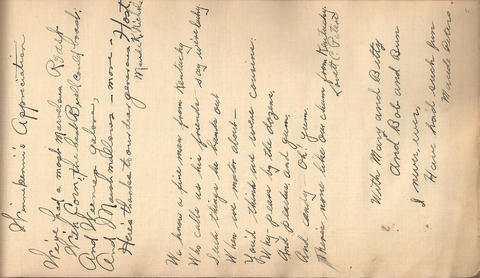 Winnepennis Appreciation
We've had a most Marvelous Roast
With Corn, the best Bread could boast;
And Weenies galore,
And Marshmallows - more -
Here's thanks to our dear generous Host,
Maude K.
We know a fine man from Kentucky
Who calls us his friends say we're lucky
Such things he hands out
When we motor about -
You'd think we were cousins.
Why - pears by the dozens,
And peaches, and gum,
And candy - Oh! Yum.
There's none like our chum from Kentucky.
With Mary and Betty
And Bob and Ben
I never ever
Have had such fun
Maude Peters